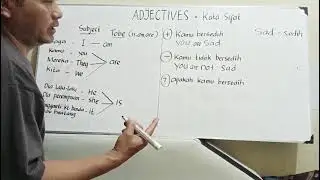 ADJECTIVES = Kata Sifat
Subject Tobe (is.am.are)
I — am
Kamu - you
Mereka - They
are
Kita - We
Dia laki-laki - He
Dia perempuan - she
is
it
(+) Kamu bersedih
you are sad
Sad = sedih
(-) Kamu tidak bersedih
you are not sad
(?) Apakah kamu bersedih